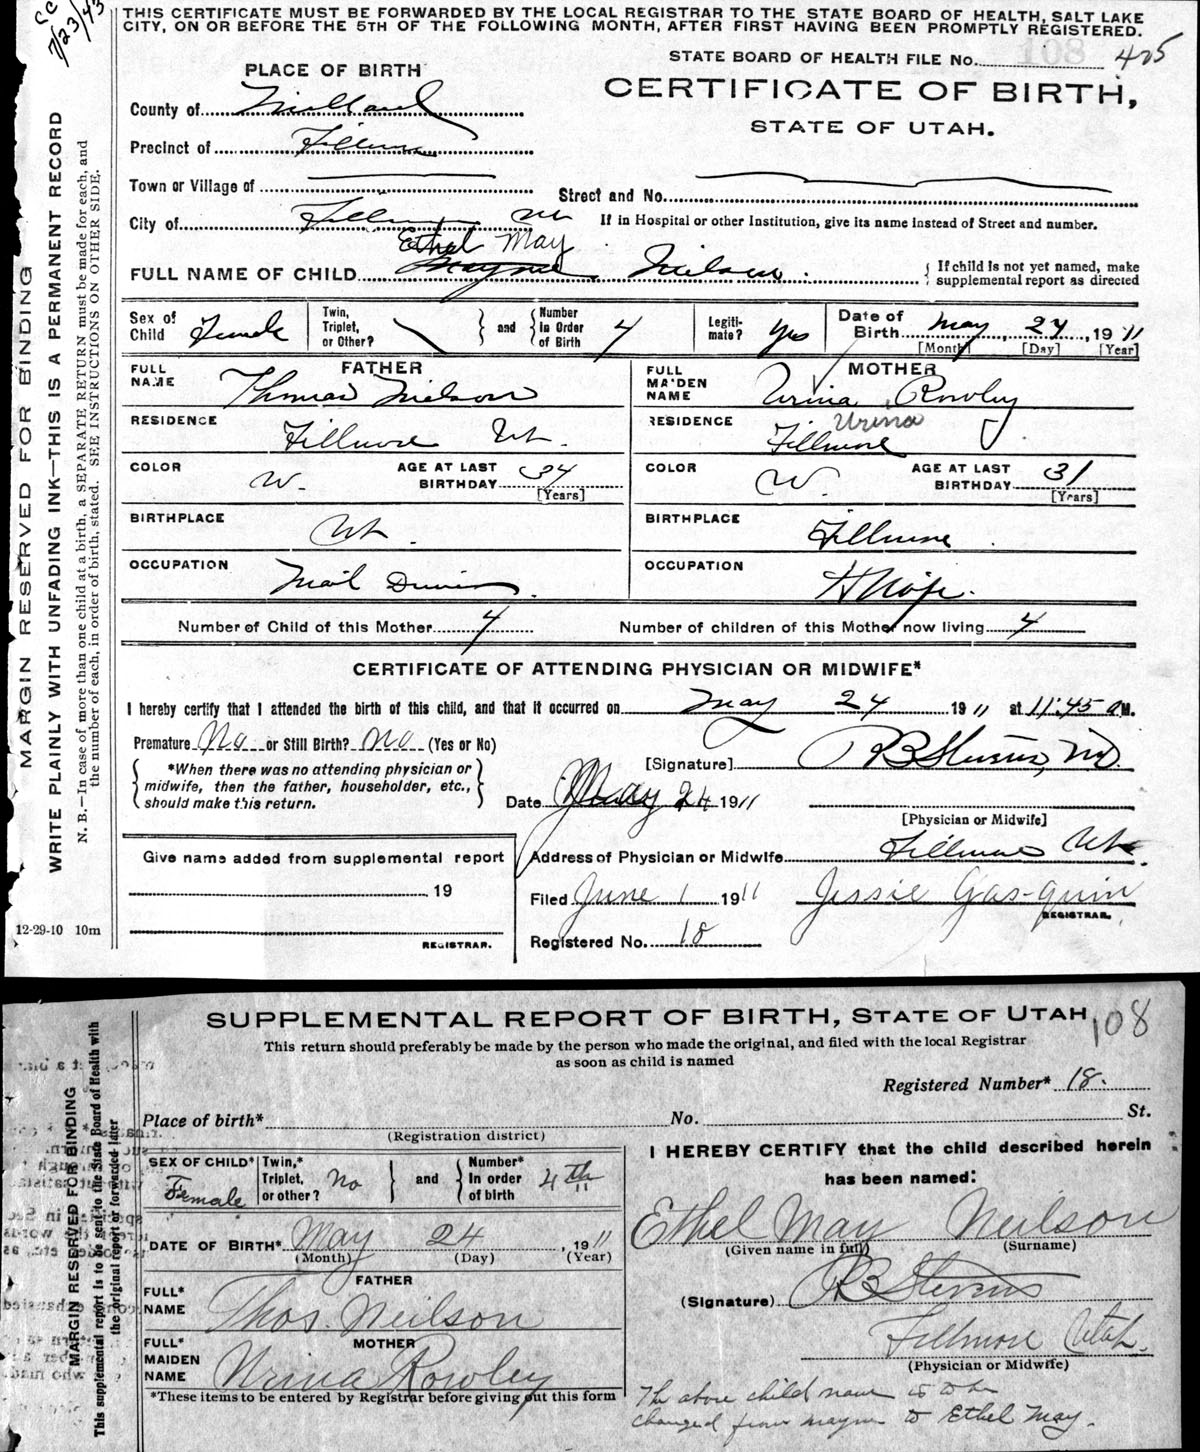 SC
7/23/43
THIS CERTIFICATE MUST BE FORWARDED BY THE LOCAL REGISTRAR TO THE STATE BOARD OF HEALTH, SALT LAKE
CITY, ON OR BEFORE THE 5TH OF THE FOLLOWING MONTH, AFTER FIRST HAVING BEEN PROMPTLY REGISTERED.
STATE BOARD OF HEALTH FILE No. 108 425
PLACE OF BIRTH
CERTIFICATE OF BIRTH,
STATE OF UTAH.
County of Millard
Precinct of Fillmore
Town or Village of
Street and No.
City of Fillmore Ut
If in Hospital or other Institution, give its name instead of Street and number.
Ethel May
FULL NAME OF CHILD Mayme Neilson.
If child is not yet named, make
supplemental report as directed
Sex of Child Female
Twin, Triplet, or Other?
and
Number In Order of Birth 4
Legiti-mate? Yes
Date of Birth May 24, 1911
[Month] [Day] [Year]
FATHER
FULL NAME Thomas Neilson
MOTHER
FULL MAIDEN NAME Urina Rowley
Urina
RESIDENCE Fillmore Ut.
RESIDENCE Fillmore
COLOR W. AGE AT LAST BIRTHDAY 34 [Years]
COLOR W. AGE AT LAST BIRTHDAY 31 [Years]
BIRTHPLACE Ut.
BIRTHPLACE Fillmore.
OCCUPATION Mail Driver.
OCCUPATION H Wife.
Number of Child of this Mother 4 Number of children of this Mother now living 4
CERTIFICATE OF ATTENDING PHYSICIAN OR MIDWIFE*
I hereby certify that I attended the birth of this child, and that it occurred on May 24 1911 at 11:45 a M.
Premature No or Still Birth? No (Yes or No)
*When there was no attending physician or
midwife, then the father, householder, etc.,
should make this return.
[Signature] R B Stevens, MD.
Date May 24 1911
[Physician or Midwife]
Address of Physician or Midwife Fillmore Ut.
Give name added from supplemental report
19
REGISTRAR.
Filed June 1 1911 Jessie Gas-quin
REGISTRAR.
Registered No. 18
12-29-10 10m
MARGIN RESERVED FOR BINDING
WRITE PLAINLY WITH UNFADING INK—THIS IS A PERMANENT RECORD
N. B.—In case of more than one child at a birth, a SEPARATE RETURN must be made for each, and
the number of each, in order of birth, stated. SEE INSTRUCTIONS ON OTHER SIDE.
SUPPLEMENTAL REPORT OF BIRTH, STATE OF UTAH
108
This return should preferably be made by the person who made the original, and filed with the local Registrar
as soon as child is named
Registered Number* 18.
Place of birth* No. St.
(Registration district)
SEX OF CHILD* Female
Twin,* Triplet, or other? No
and
Number* In order of birth 4th
DATE OF BIRTH* May 24, 1911
(Month) (Day) (Year)
FATHER
FULL* NAME Thos. Neilson
MOTHER
FULL* MAIDEN NAME Urina Rowley
*These items to be entered by Registrar before giving out this form
I HEREBY CERTIFY that the child described herein
has been named:
Ethel May Neilson
(Given name in full) (Surname)
(Signature) R B Stevens
Fillmore Utah.
(Physician or Midwife)
The above child name is to be
changed from mayme to Ethel May.
MARGIN RESERVED FOR BINDING
This supplemental report is to be sent to the State Board of Health with
the original report or forwarded later